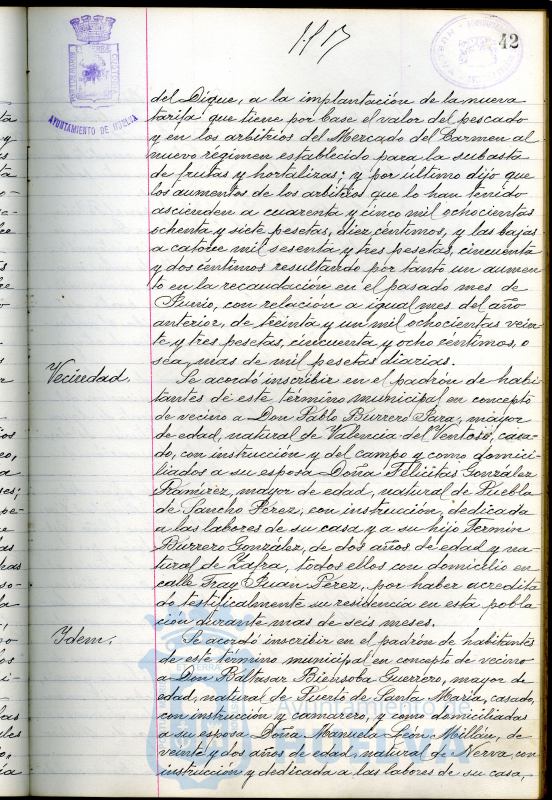 42
AYUNTAMIENTO DE HUELVA
del Dique, a la implantación de la nueva
tarifa que tiene por base el valor del pescado
y en los arbitrios del Mercado del Carmen al
nuevo régimen establecido para la subasta
de frutas y hortalizas; y por ultimo dijo que
los aumentos de los arbitrios que lo han tenido
ascienden a cuarenta y cinco mil ochocientas
ochenta y siete pesetas, diez céntimos, y las bajas
a catorce mil sesenta y tres pesetas, cincuenta
y dos céntimos resultando por tanto un aumen
to en la recaudación en el pasado mes de
Junio, con relación a igual mes del año
anterior, de treinta y un mil ochocientas vein
te y tres pesetas, cincuenta y ocho céntimos, o
sea, mas de mil pesetas diarias.
Vecindad.
Se acordó inscribir en el padrón de habi
tantes de este término municipal en concepto
de vecino a Don Pablo Burrero Jara, mayor
de edad, natural de Valencia del Ventoso, casa
do, con instrucción y del campo y como domici
liados a su esposa Doña Felicitas González
Ramírez, mayor de edad, natural de Puebla
de Sancho Pérez, con instrucción, dedicada
a las labores de su casa y a su hijo Fermín
Burrero González, de dos años de edad y na
tural de Zafra, todos ellos con domicilio en
calle Fray Juan Pérez, por haber acredita
do testificalmente su residencia en esta pobla
ción durante mas de seis meses.
Ydem.
Se acordó inscribir en el padrón de habitantes
de este término municipal en concepto de vecino
a Don Baltasar Biensoba Guerrero, mayor de
edad, natural de Puerto de Santa María, casado,
con instrucción y camarero, y como domiciliadas
a su esposa Doña Manuela León Millán, de
veinte y dos años de edad, natural de Nerva con
instrucción y dedicada a las labores de su casa,
Ayuntamiento de
HUELVA